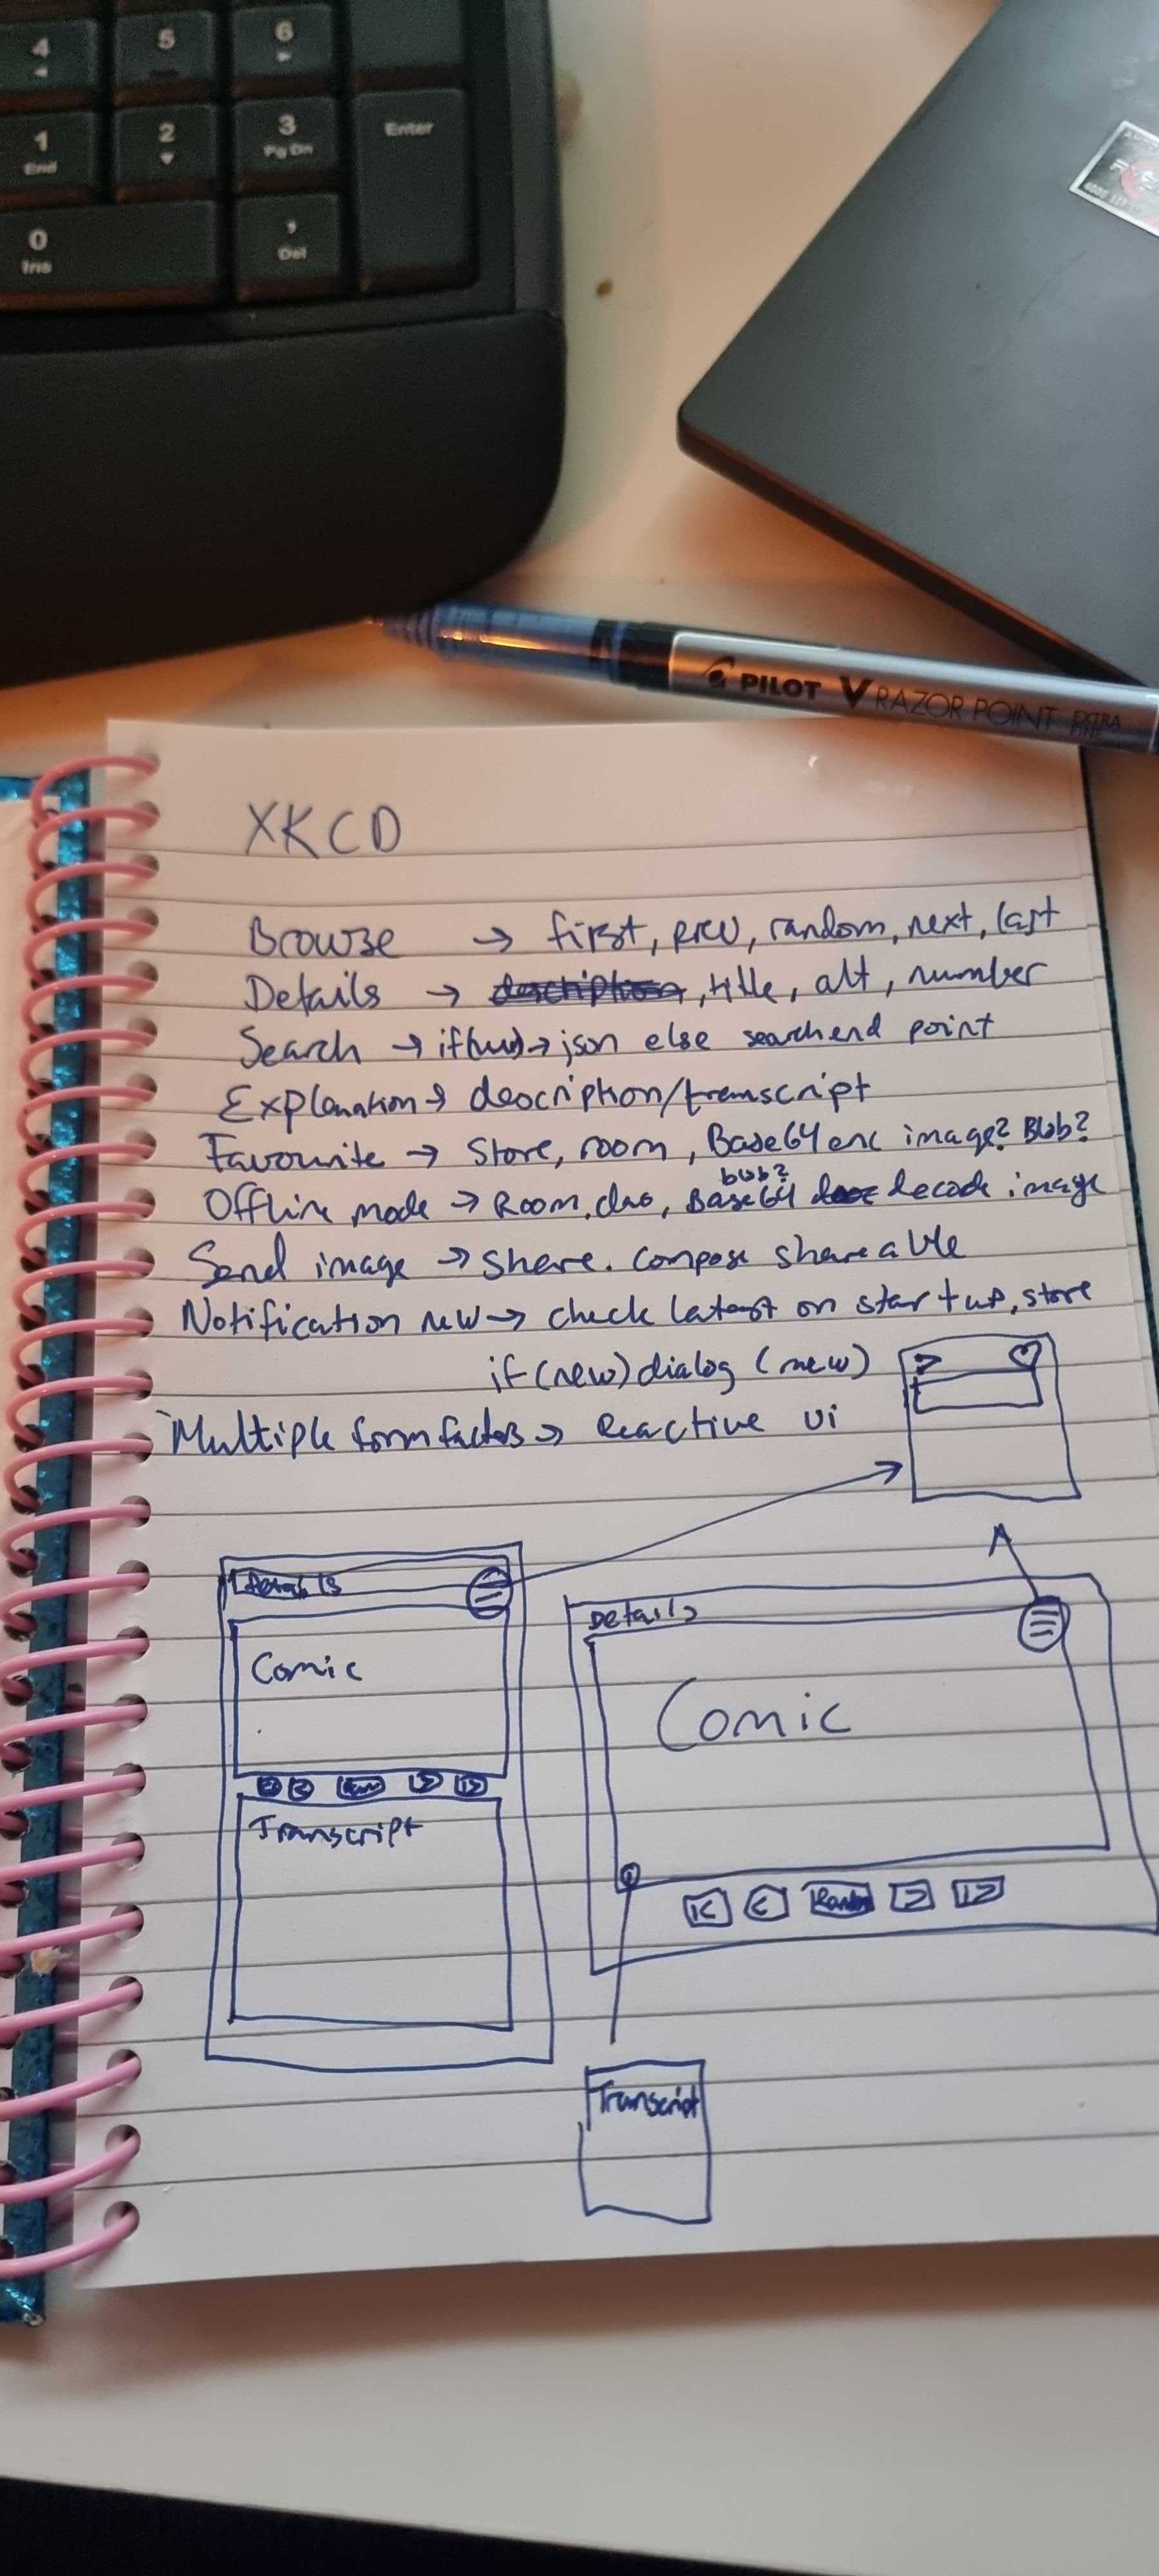 4
5
6
1
End
2
3
Pg Dn
Enter
0
Ins
,
Del
PILOT V RAZOR POINT EXTRA FINE
XKCD
Browse → first, prev, random, next, last
Details → description, title, alt, number
Search → if(num)→json else searchend point
Explanation → description/transcript
Favourite → Store, room, Base64 enc image? Blob?
blob?
Offline mode → Room, dao, Base64 decode image
Send image → Share. Compose shareable
Notification new → check latest on startup, store
if (new) dialog (new)
Multiple form factors → Reactive ui
Details
Comic
Transcript
Details
Comic
|< < Random > |>
Transcript